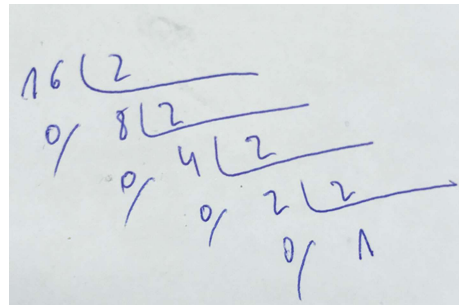 16 2
0/ 8 2
0/ 4 2
0/ 2 2
0/ 1